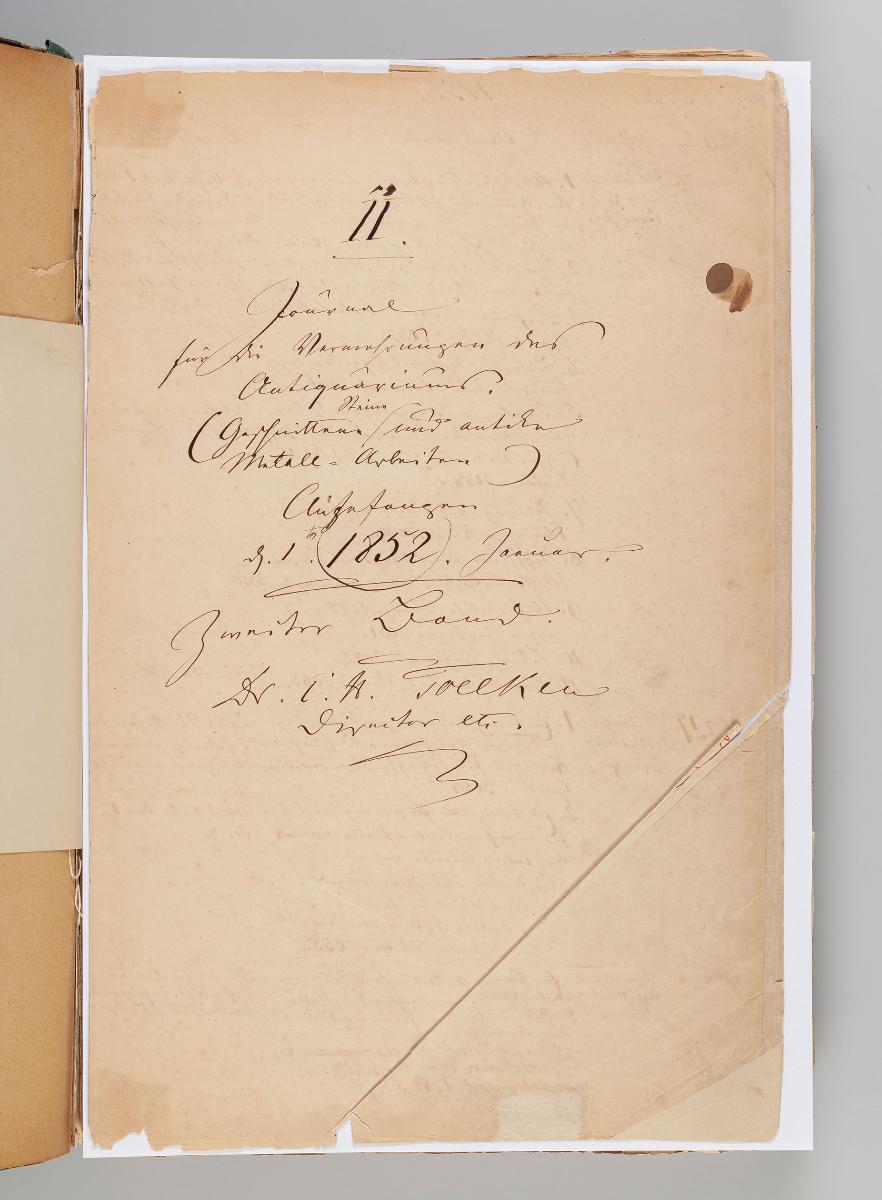 II.
Journal
für die Vermehrungen des
Antiquariums.
(Geschnittene Steine und antike
Metall-Arbeiten)
Angefangen
d. 1ten 1852. Januar.
Zweiter Band.
Dr. E. H. Toelken
Director etc.